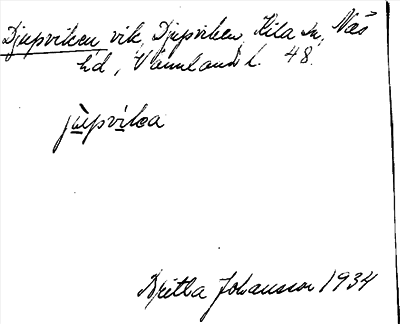 Djupviken vik, Djupviken, Kila sn, Näs
hd, Värmlands l. 48.
jùpvìka
Britta Johansson 1934